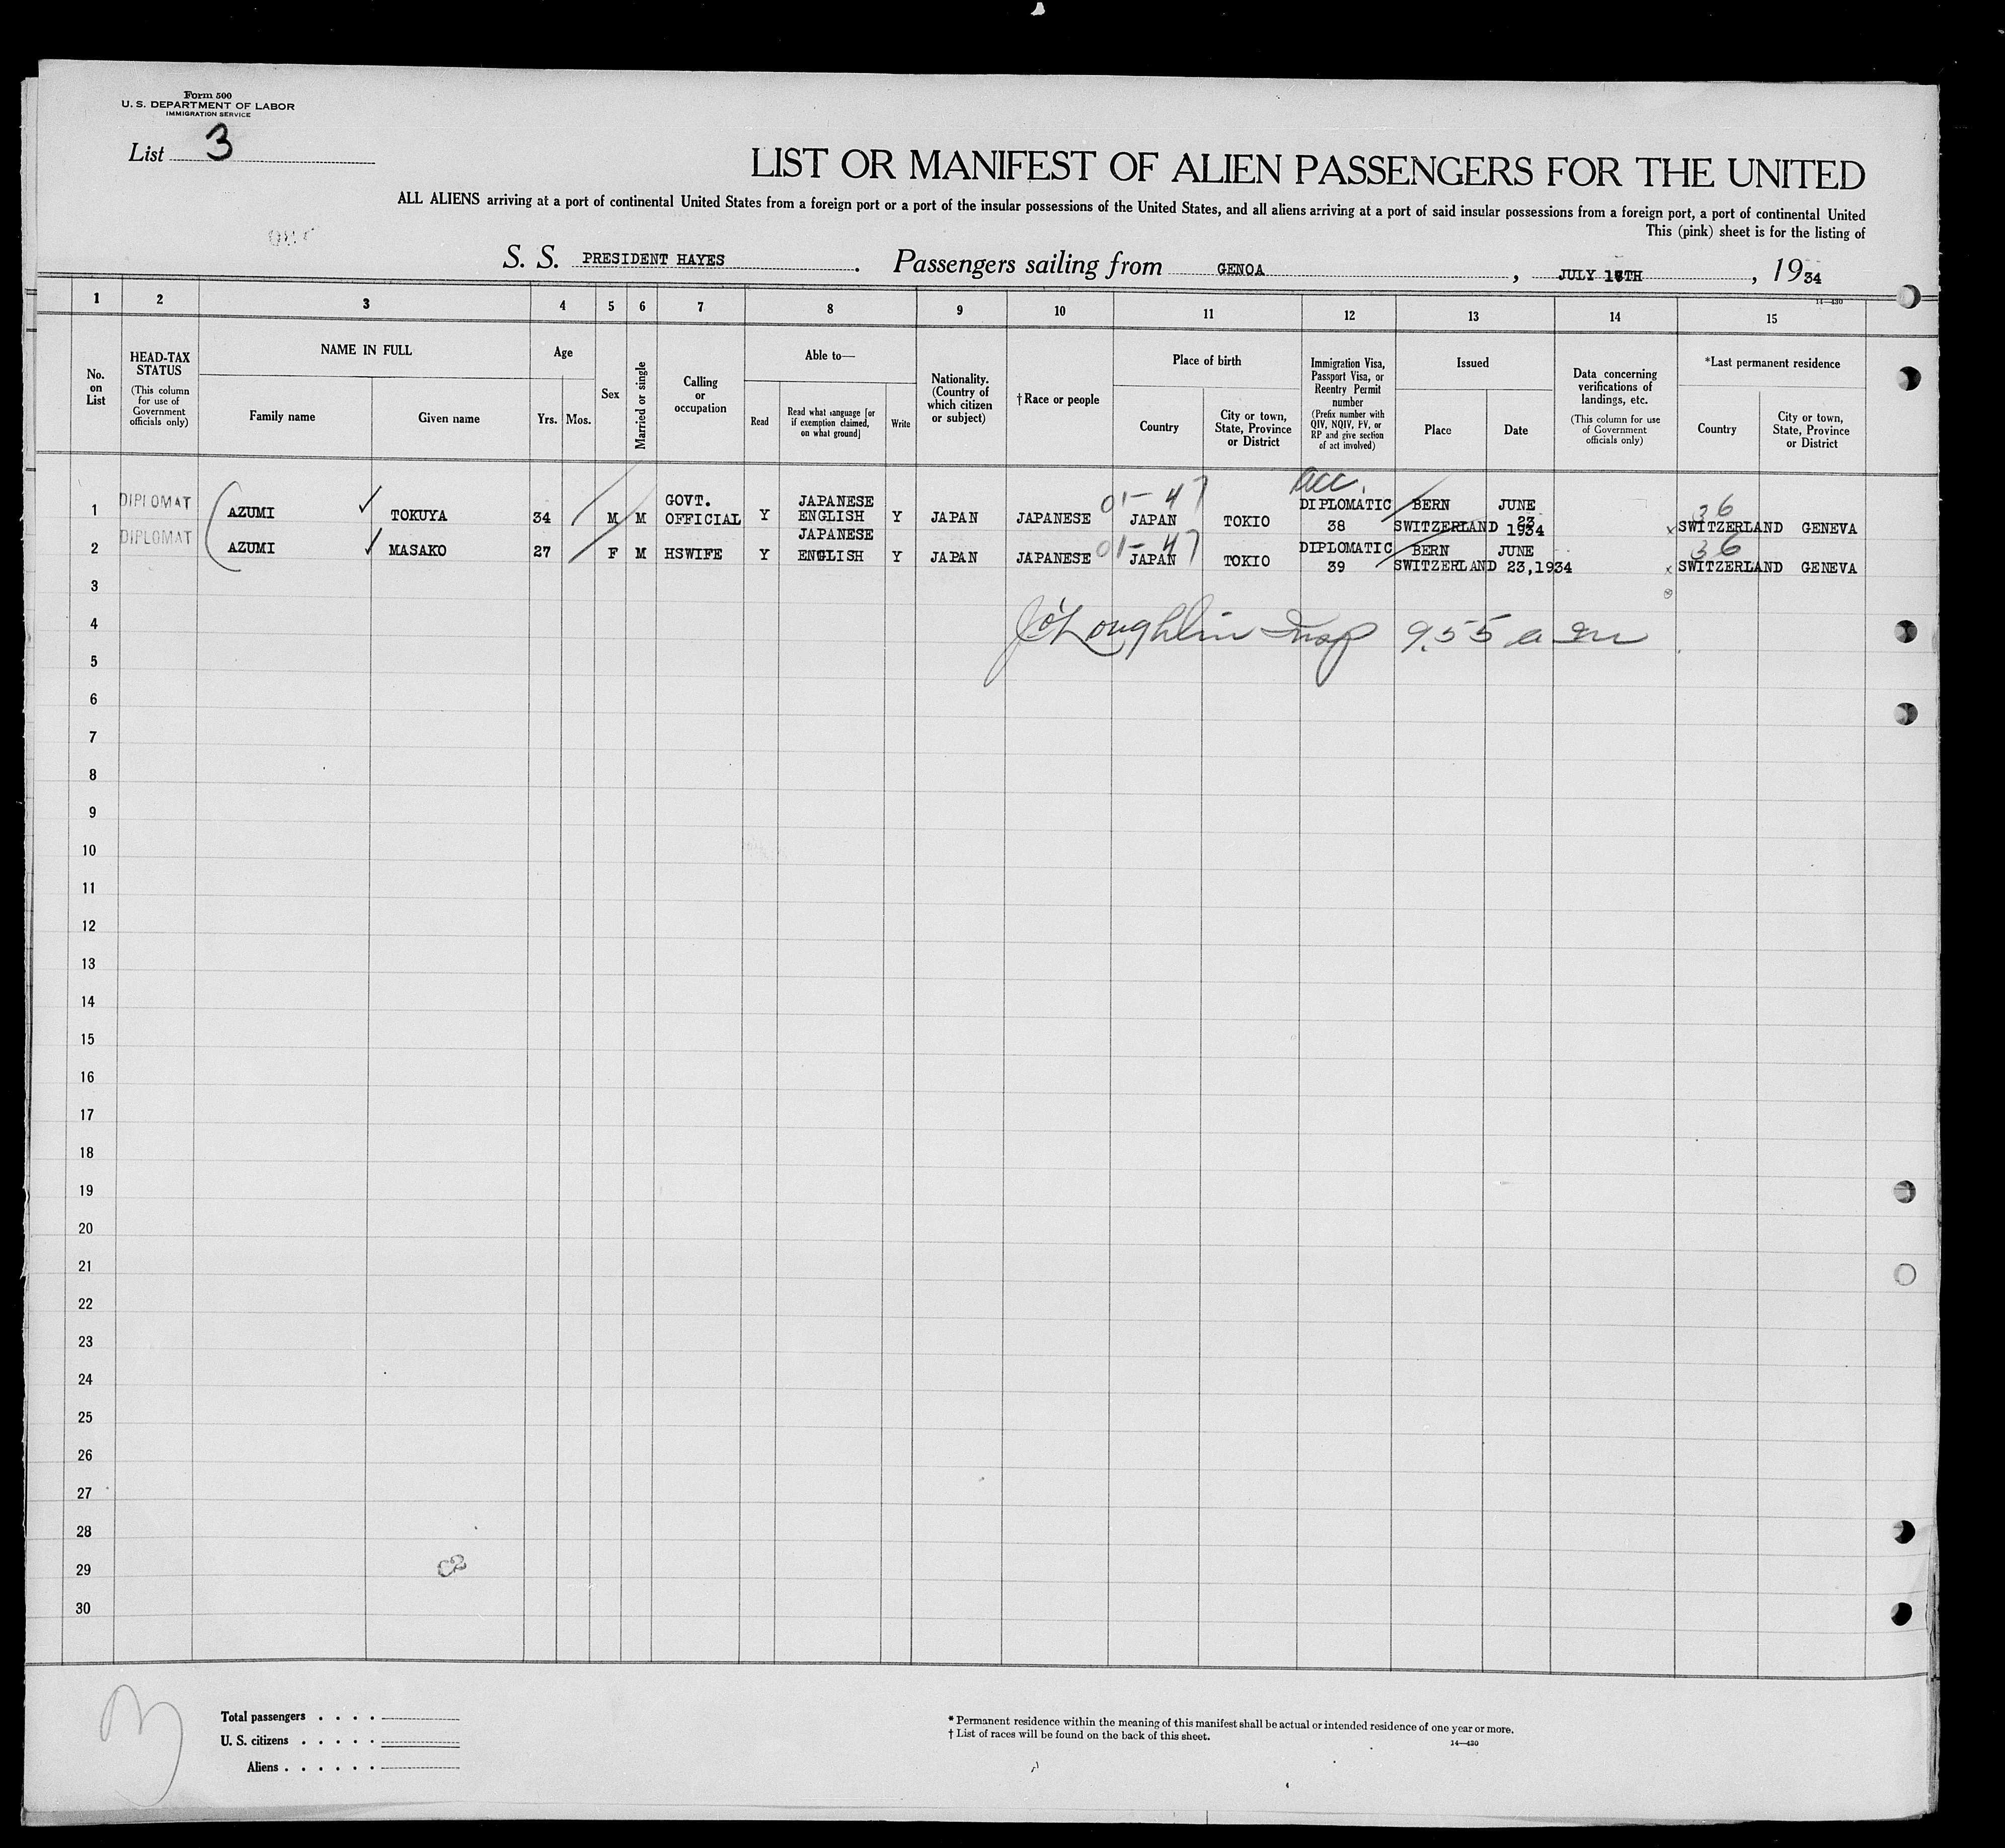 Form 500
U. S. DEPARTMENT OF LABOR
IMMIGRATION SERVICE
List 3
LIST OR MANIFEST OF ALIEN PASSENGERS FOR THE UNITED
ALL ALIENS arriving at a port of continental United States from a foreign port or a port of the insular possessions of the United States, and all aliens arriving at a port of said insular possessions from a foreign port, a port of continental United
This (pink) sheet is for the listing of
S. S. PRESIDENT HAYES. Passengers sailing from GENOA, JULY TH, 1934
14—430
1 2 3 4 5 6 7 8 9 10 11 12 13 14 15
No. on List
HEAD-TAX STATUS
(This column for use of Government officials only)
NAME IN FULL
Family name
Given name
Age
Yrs.
Mos.
Sex
Married or single
Calling or occupation
Able to—
Read
Read what language [or if exemption claimed, on what ground]
Write
Nationality. (Country of which citizen or subject)
†Race or people
Place of birth
Country
City or town, State, Province or District
Immigration Visa, Passport Visa, or Reentry Permit number
(Prefix number with QIV, NQIV, PV, or RP and give section of act involved)
Issued
Place
Date
Data concerning verifications of landings, etc.
(This column for use of Government officials only)
*Last permanent residence
Country
City or town, State, Province or District
acc.
1 DIPLOMAT AZUMI TOKUYA 34 M M GOVT. OFFICIAL Y JAPANESE ENGLISH Y JAPAN JAPANESE 01-47 JAPAN TOKIO DIPLOMATIC 38 BERN SWITZERLAND JUNE 23 1934 36 x SWITZERLAND GENEVA
2 DIPLOMAT AZUMI MASAKO 27 F M HSWIFE Y JAPANESE ENGLISH Y JAPAN JAPANESE 01-47 JAPAN TOKIO DIPLOMATIC 39 BERN SWITZERLAND JUNE 23,1934 36 x SWITZERLAND GENEVA
3
4 J O'Loughlin Insp 9.55 a m
5
6
7
8
9
10
11
12
13
14
15
16
17
18
19
20
21
22
23
24
25
26
27
28
29
30
Total passengers . . . .
U. S. citizens . . . . .
Aliens . . . . . .
* Permanent residence within the meaning of this manifest shall be actual or intended residence of one year or more.
† List of races will be found on the back of this sheet.
14—430